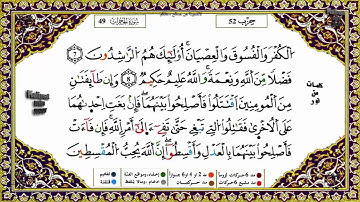 سورة الحجرات 49
حزب 52
الْكُفْرَ وَالْفُسُوقَ وَالْعِصْيَانَ أُوْلَٰٓئِكَ هُمُ الرَّٰشِدُونَ ٧
فَضْلًا مِّنَ اللَّهِ وَنِعْمَةً وَاللَّهُ عَلِيمٌ حَكِيمٌ ٨ وَإِن طَآئِفَتَانِ
مِنَ الْمُؤْمِنِينَ اقْتَتَلُوا فَأَصْلِحُوا بَيْنَهُمَا فَإِن بَغَتْ إِحْدَىٰهُمَا
عَلَى الْأُخْرَىٰ فَقَٰتِلُوا الَّتِي تَبْغِي حَتَّىٰ تَفِيٓءَ إِلَىٰٓ أَمْرِ اللَّهِ فَإِن فَآءَتْ
فَأَصْلِحُوا بَيْنَهُمَا بِالْعَدْلِ وَأَقْسِطُوٓا إِنَّ اللَّهَ يُحِبُّ الْمُقْسِطِينَ